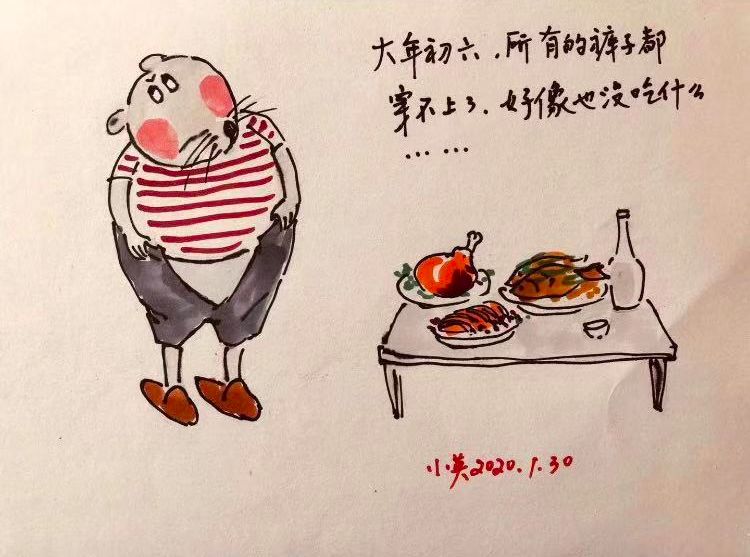 大年初六，所有的裤子都
穿不上了，好像也没吃什么
……
小英2020.1.30